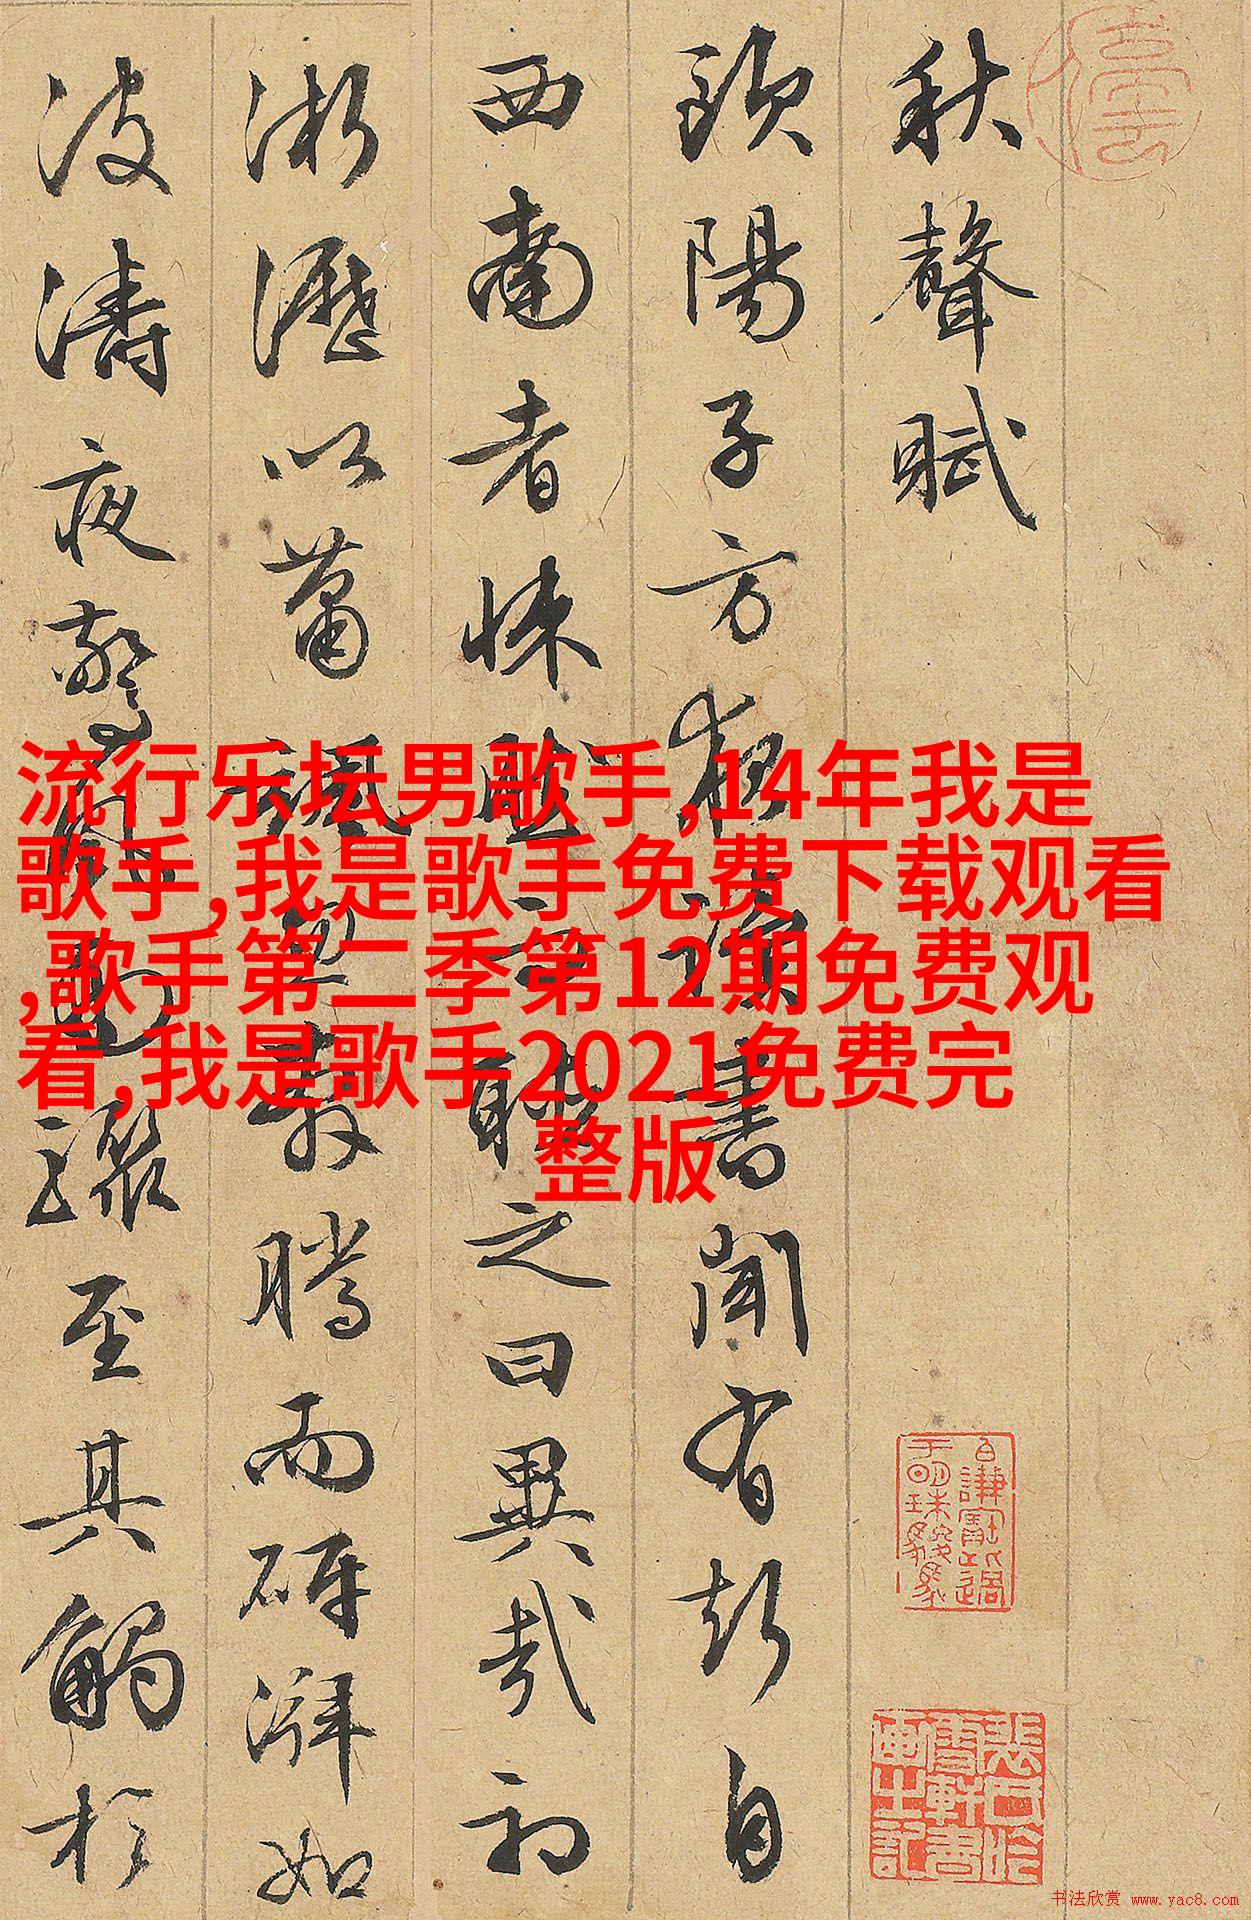 秋聲賦
歐陽子方夜讀書聞有聲自
西南者悚然而聽之曰異哉初
淅瀝以蕭颯忽奔騰而砰湃如
波濤夜驚風雨驟至其觸於
流行乐坛男歌手,14年我是
歌手,我是歌手免费下载观看
,歌手第二季第12期免费观
看,我是歌手2021免费完
整版
书法欣赏 www.yac8.com